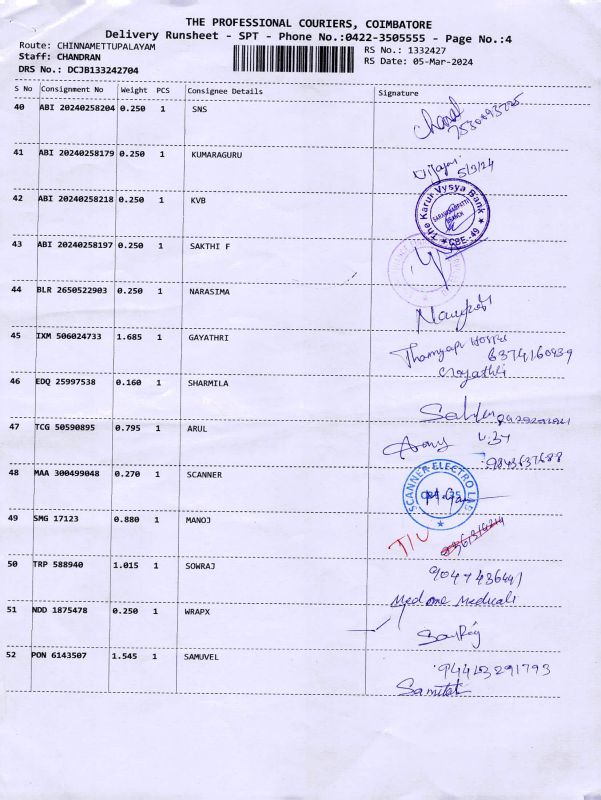 THE PROFESSIONAL COURIERS, COIMBATORE
Delivery Runsheet - SPT - Phone No.:0422-3505555 - Page No.:4
Route: CHINNAMETTUPALAYAM
RS No.: 1332427
Staff: CHANDRAN
RS Date: 05-Mar-2024
DRS No.: DCJB133242704
S No Consignment No Weight PCS Consignee Details Signature
40 ABI 20240258204 0.250 1 SNS
41 ABI 20240258179 0.250 1 KUMARAGURU
5/3/24
42 ABI 20240258218 0.250 1 KVB
The Karur Vysya Bank
BRANCH
CBE-49
43 ABI 20240258197 0.250 1 SAKTHI F
44 BLR 2650522903 0.250 1 NARASIMA
45 IXM 506024733 1.685 1 GAYATHRI
46 EDQ 25997538 0.160 1 SHARMILA
47 TCG 50590895 0.795 1 ARUL
9843637688
48 MAA 300499048 0.270 1 SCANNER
SCANNER ELECTRO LAB
49 SMG 17123 0.880 1 MANOJ
50 TRP 588940 1.015 1 SOWRAJ
Med one Medicals
51 NDD 1875478 0.250 1 WRAPX
52 PON 6143507 1.545 1 SAMUVEL